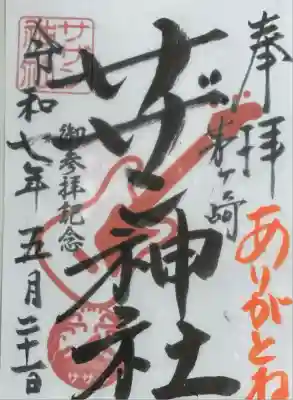 奉拝
茅ヶ崎
サザン神社
御参拝記念
令和七年五月二十一日
ありがとね
サザン
神社